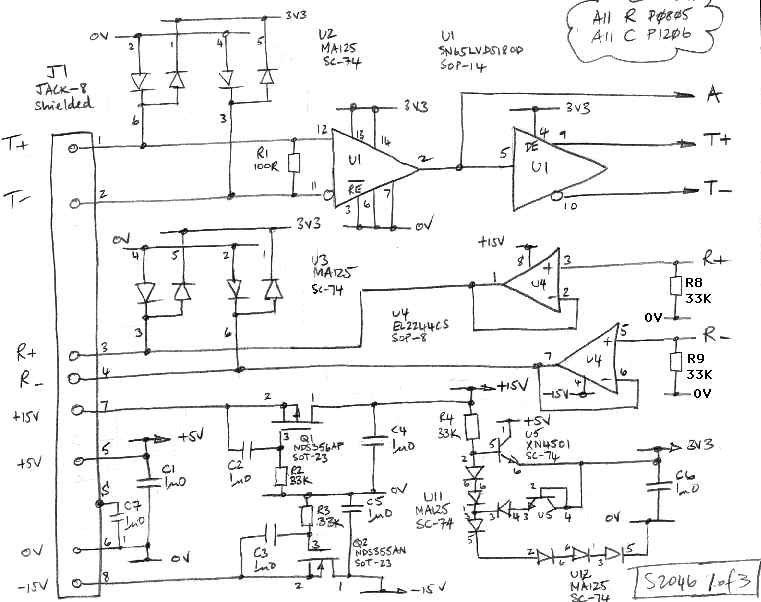 All R P0805
All C P1206
3V3
0V
2
1
4
5
U2
MA125
SC-74
U1
SN65LVDS180D
SOP-14
J1
JACK-8
Shielded
6
3
3V3
3V3
A
T+
1
12
13
14
4
9
T+
R1
100R
U1
2
5
DE
U1
T-
2
11
RE
3
6
7
0V
10
T-
3V3
0V
4
5
2
1
U3
MA125
SC-74
+15V
8
3
R+
1
+
-
U4
2
R8
33K
0V
3
6
U4
EL2244CS
SOP-8
5
R-
R+
3
7
+
-
U4
4
6
-15V
R9
33K
0V
R-
4
+15V
7
2
1
+15V
3
Q1
NDS356AP
SOT-23
C4
1u0
R4
33K
+5V
U5
XN4501
SC-74
5
2
6
3V3
+5V
5
+5V
C1
1u0
C2
1u0
R2
33K
0V
C5
1u0
U11
MA125
SC-74
6
1
3
5
3
4
2
U5
4
C6
1u0
S
C7
1u0
R3
33K
0V
0V
6
1
0V
C3
1u0
3
Q2
NDS355AN
SOT-23
2
6
6
1
3
5
-15V
8
2
1
-15V
U12
MA125
SC-74
S2046 1 of 3